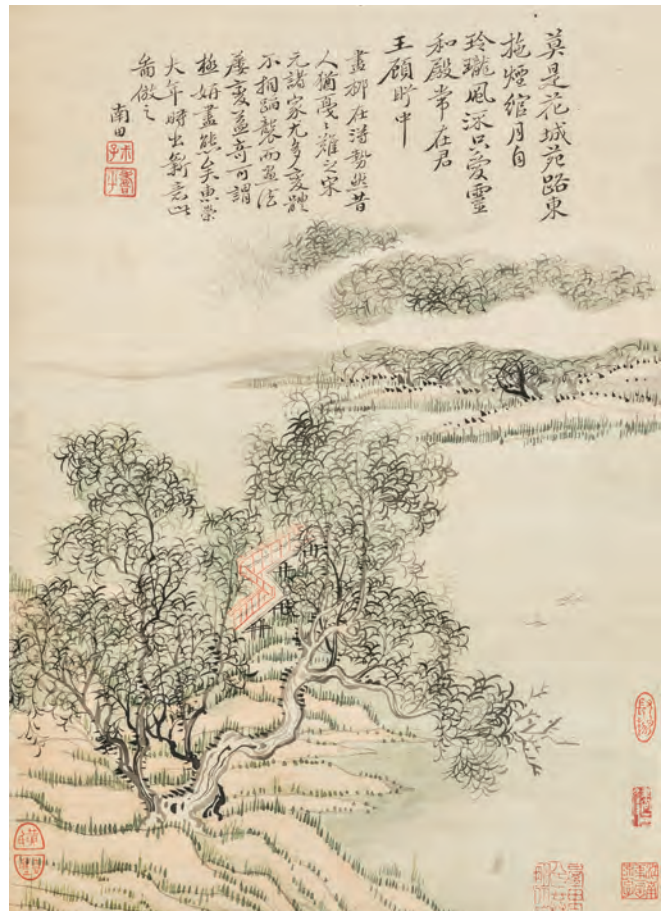 莫是花城苑路東
拖煙綰月自
玲瓏風流只愛靈
和殿常在君
王顧盻中
畫柳在得勢然昔
人猶戛々難之宋
元諸家尤多變體
不相蹈襲而畫法
屢變益奇可謂
極妍盡能矣惠崇
大年時出新意此
啚倣之
南田